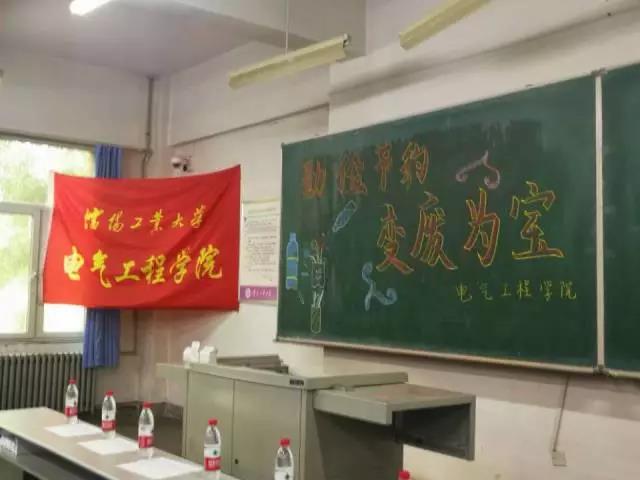 沈阳工业大学
电气工程学院
勤俭节约
变废为宝
电气工程学院